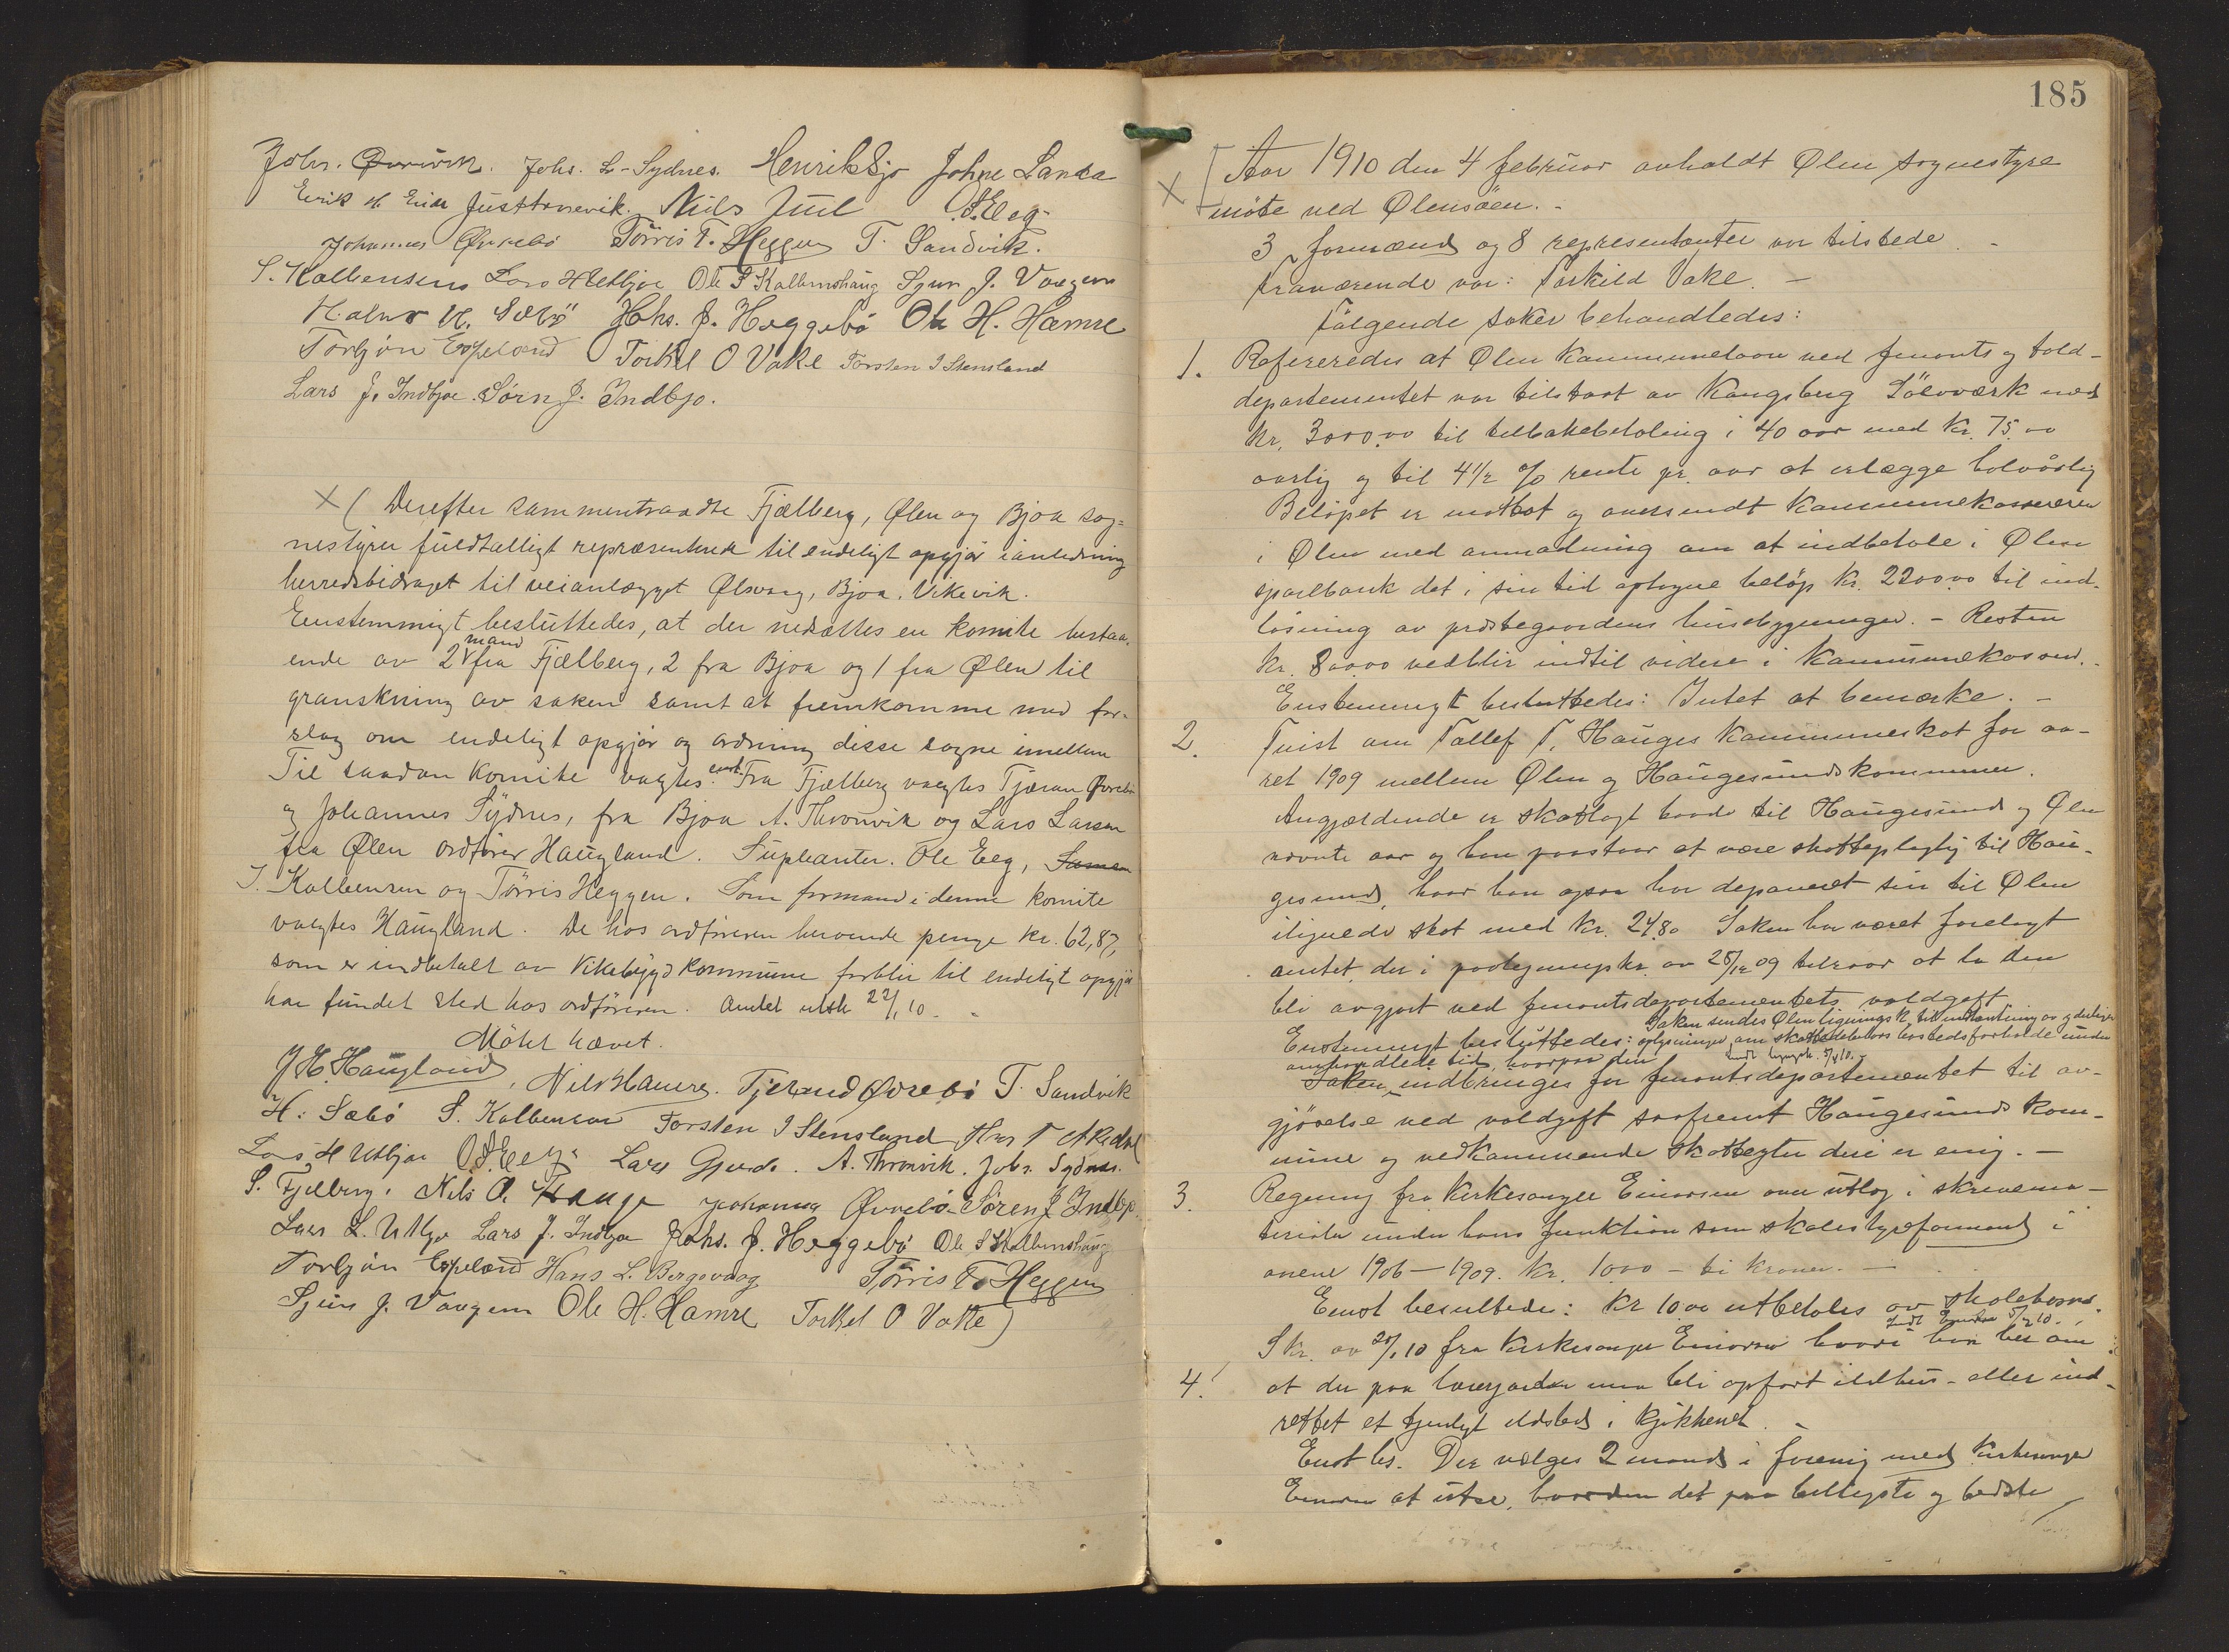 Johs. L. Sydnes. Henrik Sjo Johne Landa
Nils Juul O.S. Eeg
Johannes Øvrebø Tørris T. Heggen T. Sandvik.
S. Kalbensen Lars H Utbjoe Ole S Kalbenshaug Sjur J. Vaagen
H. Sæbø Johs. J. Heggebø Ole H. Hamre
Torbjøn Espeland Torkel O Vake Torsten I Stensland
Lars J. Indbjoe. Sørn J. Indbjo.
X ( Derefter sammentraadte Fjælberg, Ølen og Bjoa sog=
nestyrer fuldtalligt repræsenterede til endeligt opgjør i anledning
herredsbidraget til veianlægget Ølsvaag, Bjoa, Vikevik.
Eenstemmigt besluttedes, at der nedsættes en komite bestaa-
mand
ende av 2 fra Fjælberg, 2 fra Bjoa og 1 fra Ølen til
granskning av saken samt at fremkomme med for-
slag om endeligt opgjør og ordning disse sogne imellem
Til saadan komite valgtes enst. Fra Fjælberg valgtes Tjæran Øvrebø
og Johannes Sydnes, fra Bjoa A. Thronvik og Lars Larsen
fra Ølen ordfører Haugland. Supleanter. Ole Eeg,
S. Kalbensen og Tørris Heggen. Som formand i denne komite
valgtes Haugland. De hos ordføreren beroende penge kr. 62,87,
som er indbetalt av Vikebygd kommune forblir til endeligt opgjør
har fundet sted hos ordføreren. Amtet utsk 22/1 10.
Møtet hævet.
J H. Haugland, Nils Hamre. Tjerand Øvrebø T. Sandvik
H. Sæbø S. Kalbensen Torsten I Stensland
Lars H Utbjoe O.S. Eeg. Lars Gjerde. A. Thronvik. Johs. Sydnes.
S. Fjelberg. Nils O. Hauge Johannes Øvrebø Søren J Indbjo.
Lars L. Utbjo Lars J. Indbjoe Johs. J. Heggebø Ole S Kalbenshaug
Torbjøn Espeland Hans L. Bergsvaag Tørris T. Heggen
Sjur J. Vaagen Ole H. Hamre Torkel O Vake )
185
X [ Aar 1910 den 4 februar avholdt Ølen sognestyre
møte ved Ølensøen. -
3 formænd og 8 representanter var tilstede. -
Fraværende var: Torkild Vake. -
Følgende saker behandledes:
1. Refereredes at Ølen kommunelaan ved finants og told-
departementet var tilstaat av Kongsberg Sölvværk med
kr. 3000.00 til tilbakebetaling i 40 aar med kr. 75.00
aarlig og til 4 1/2 % rente pr. aar at erlægge halvårlig
Belöpet er mottat og oversendt kommunekassereren
i Ølen med anmodning om at indbetale i Ølen
sparebank det i sin tid optagne belöp kr. 2200.00 til ind-
løsning av prestegaardens husebygninger. - Resten
kr. 800.00 vedblir indtil videre i kommunekassen. -
Enstemmigt besluttedes: Intet at bemærke. -
2. Tvist om Tallef T. Hauges kommuneskat for aa-
ret 1909 mellem Ølen og Haugesunds kommuner.
Angjældende er skatlagt baade til Haugesund og Ølen
nævnte aar og han paastaar at være skattepligtig til Hau-
gesund, hvor han ogsaa har deponeret sin til Ølen
ilignede skat med kr. 24.80 Saken har været forelagt
amtet, der i paategningskr. av 28/12 09 tilraar at la den
bli avgjort ved finantsdepartementets voldgift
Saken sendes Ølen ligningsk. til indhentning av yderligere
Enstemmigt besluttedes: oplysninger om skattedebitors bostedsforholde under
omhandlede tid, hvorpaa den
Saken indbringes for finantsdepartementet til av-
gjörelse ved voldgift saafremt Haugesunds kom-
mune og vedkommende skatteyter deri er enig. -
3. Regning fra kirkesanger Einarsen over utlæg i skrivema-
terialer under hans funktion som skolestyreformand i
aarene 1906-1909. Kr. 10.00 - ti kroner. -
Enst besluttedes: Kr 10.00 utbetales av skolekassen.
Skr. av 20/1 10 fra kirkesanger Einarsen hvori han ber om
4. at der paa lærergarden maa bli opført ildhus - eller ind-
rettet et tjenligt ildsted i kjøkkenet. -
Enst bs. Der vælges 2 mand i forening med kirkesanger
Einarsen at utse, hvordan det paa billigste og bedste